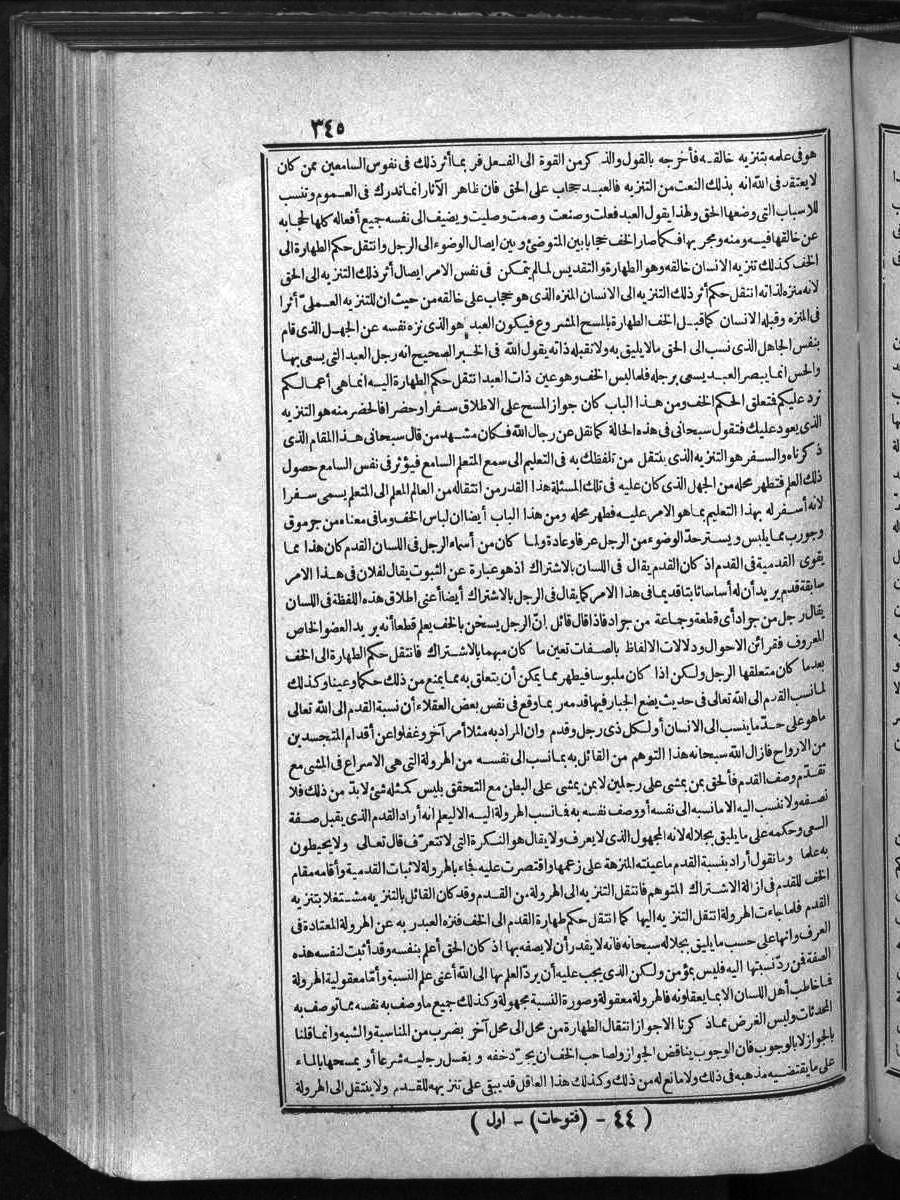 ٣٤٥
هو في علمه بتنزيه خالقه فأخرجه بالقول والذكر من القوة الى الفعل فربما أثر ذلك في نفوس السامعين ممن كان
لا يعتقد في الله انه بذلك النعت من التنزيه فالعبد حجاب على الحق فان ظاهر الآثار انما تدرك في العموم وتنسب
للاسباب التي وضعها الحق ولهذا يقول العبد فعلت وصنعت وصمت وصليت ويضيف الى نفسه جميع أفعاله كلها لحجابه
عن خالقها فيه ومنه ومجريها فكما صار الخف حجابا بين المتوضئ وبين ايصال الوضوء الى الرجل وانتقل حكم الطهارة الى
الخف كذلك تنزيه الانسان خالقه وهو الطهارة والتقديس لما لم يتمكن في نفس الامر ايصال أثر ذلك التنزيه الى الحق
لانه منزه لذاته انتقل حكم أثر ذلك التنزيه الى الانسان المنزه الذي هو حجاب على خالقه من حيث ان للتنزيه العملي أثرا
في المنزه وقبله الانسان كما قبل الخف الطهارة بالمسح المشروع فيكون العبد هو الذي نزه نفسه عن الجهل الذي قام
بنفس الجاهل الذي نسب الى الحق ما لا يليق به ولا تقبله ذاته يقول الله في الخبر الصحيح انه رجل العبد التي يسعى بها
والحس انما يبصر العبد يسعى برجله فلما لبس الخف وهو عين ذات العبد انتقل حكم الطهارة اليه انما هي أعمالكم
ترد عليكم فتعلق الحكم الخف ومن هذا الباب كان جواز المسح على الاطلاق سفرا وحضرا فالحضر منه هو التنزيه
الذي يعود عليك فتقول سبحاني في هذه الحالة كما نقل عن رجال الله فكان مشهد من قال سبحاني هذا المقام الذي
ذكرناه والسفر هو التنزيه الذي ينتقل من تلفظك به في التعليم الى سمع المتعلم السامع فيؤثر في نفس السامع حصول
ذلك العلم فتطهر محله من الجهل الذي كان عليه في تلك المسئلة هذا القدر من انتقاله من العالم المعلم الى المتعلم يسمى سفرا
لانه أسفر له بهذا التعليم بما هو الامر عليه فطهر محله ومن هذا الباب أيضا ان لباس الخف وما في معناه من جرموق
وجورب مما يلبس ويستر حد الوضوء من الرجل عرفا وعادة ولما كان من أسماء الرجل في اللسان القدم كان هذا مما
يقوى القدمية في القدم اذ كان القدم يقال في اللسان بالاشتراك اذ هو عبارة عن الثبوت يقال لفلان في هذا الامر
سابقة قدم يريد أن له أساسا ثابتا قديما في هذا الامر كما يقال في الرجل بالاشتراك أيضا أعني اطلاق هذه اللفظة في اللسان
يقال رجل من جراد أي قطعة وجماعة من جراد فاذا قال قائل ان الرجل يسخن بالخف يعلم قطعا أنه يريد العضو الخاص
المعروف فقرائن الاحوال ودلالات الالفاظ بالصفات تعين ما كان مبهما بالاشتراك فانتقل حكم الطهارة الى الخف
بعد ما كان متعلقها الرجل ولكن اذا كان ملبوسا فيطهر مما يمكن أن يتعلق به مما يمنع من ذلك حكما وعينا وكذلك
لما نسب القدم الى الله تعالى في حديث يضع الجبار فيها قدمه ربما وقع في نفس بعض العقلاء أن نسبة القدم الى الله تعالى
ما هو على حد ما ينسب الى الانسان أو لكل ذي رجل وقدم وان المراد به مثلا أمر آخر وغفلوا عن أقدام المتجسدين
من الارواح فازال الله سبحانه هذا التوهم من القائل به بما نسب الى نفسه من الهرولة التي هي الاسراع في المشي مع
تقدم وصف القدم فألحق بمن يمشي على رجلين لا بمن يمشي على البطن مع التحقق بليس كمثله شئ لا بد من ذلك فلا
نصفه ولا ننسب اليه الا ما نسبه الى نفسه أو وصف نفسه به فما نسب الهرولة اليه الا ليعلم انه أراد القدم الذي يقبل صفة
السعي وحكمه على ما يليق بجلاله لانه المجهول الذي لا يعرف ولا يقال هو النكرة التي لا تتعرف قال تعالى ولا يحيطون
به علما وما نقول أراد بنسبة القدم ما عينته المنزهة على زعمها واقتصرت عليه فجاء بالهرولة لاثبات القدمية وأقامه مقام
الخف للقدم في ازالة الاشتراك المتوهم فانتقل التنزيه الى الهرولة من القدم وقد كان القائل بالتنزيه مشتغلا بتنزيه
القدم فلما جاءت الهرولة انتقل التنزيه اليها كما انتقل حكم طهارة القدم الى الخف فنزه العبد ربه عن الهرولة المعتادة في
العرف وانها على حسب ما يليق بجلاله سبحانه فانه لا يقدر أن لا يصفه بها اذ كان الحق أعلم بنفسه وقد أثبت لنفسه هذه
الصفة فمن رد نسبتها اليه فليس بمؤمن ولكن الذي يجب عليه أن يرد العلم بها الى الله أعني علم النسبة وأما معقولية الهرولة
فما خاطب أهل اللسان الا بما يعقلونه فالهرولة معقولة وصورة النسبة مجهولة وكذلك جميع ما وصف به نفسه مما توصف به
المحدثات وليس الغرض مما ذكرنا الا جواز انتقال الطهارة من محل الى محل آخر بضرب من المناسبة والشبه وانما قلنا
بالجواز لا بالوجوب فان الوجوب يناقض الجواز ولصاحب الخف ان يجرد خفه ويغسل رجليه شرعا أو يمسحها بالماء
على ما يقتضيه مذهبه في ذلك ولا مانع له من ذلك وكذلك هذا العاقل قد يبقى على تنزيهه للقدم ولا ينتقل الى الهرولة
( ٤٤ - (فتوحات) - اول )